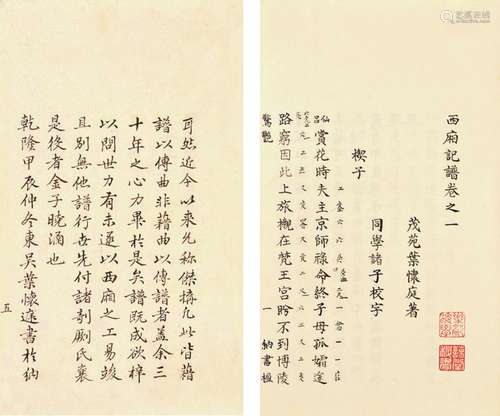 耳然近今以來允称傑搆凡此皆藉
譜以傳曲非藉曲以傳譜者盖余三
十年之心力畢於是矣譜既成欲梓
以問世力有未逮以西廂之工易竣
且別無他譜行世先付諸剞劂氏襄
是役者金子曉涵也
乾隆甲辰仲冬東吳葉懷庭書於納
五
西廂記譜卷之一
茂苑葉懷庭著
同學諸子校字
楔子
仙呂賞花時夫主京師祿命終子母孤孀途
路窮因此上旅櫬在梵王宮盼不到博陵
驚艷
一
納書楹